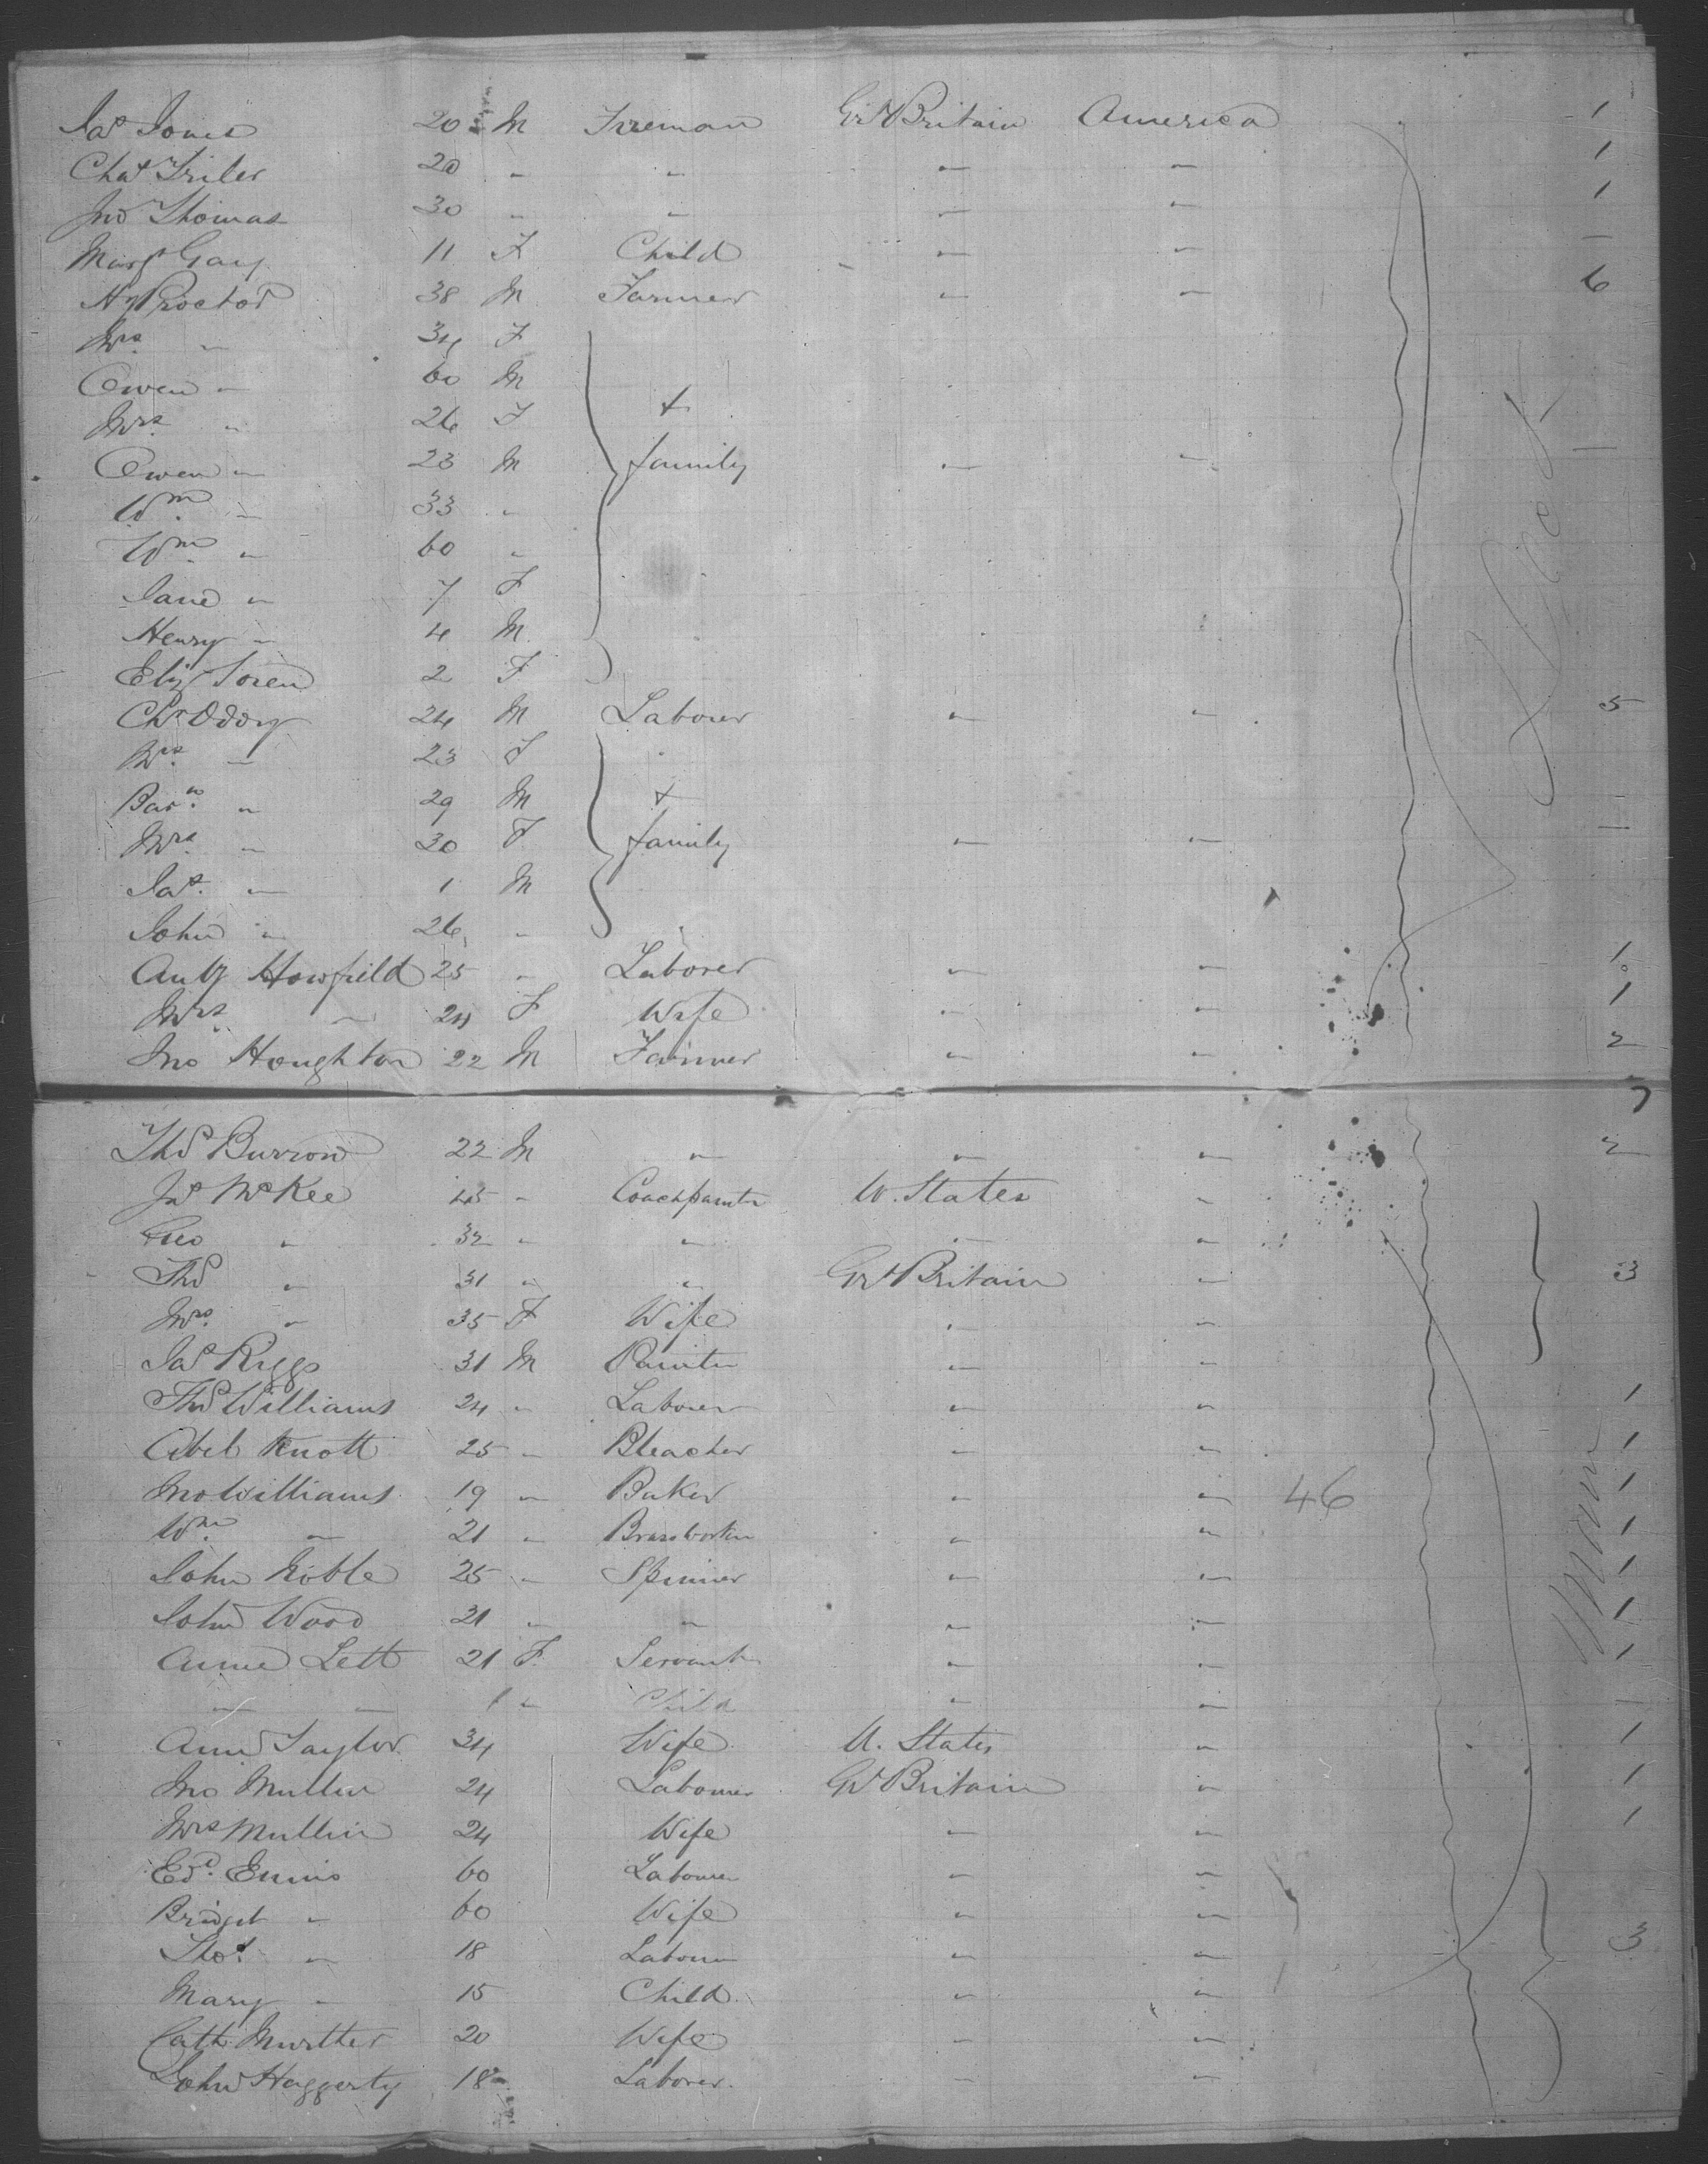 Jas Jones 20 M Fireman Grt Britain America 1
Chas Friler 20 " " " " 1
Jno Thomas 30 " " " " 1
Margt Gary 11 F Child " " 1
Hy Proctor 38 M Farmer " " 6
Mrs " 34 F
Owen " 60 M
Mrs " 26 F +
Owen " 23 M family " " 1
Wm " 33 "
Wm " 60 "
Jane " 7 F
Henry " 4 M
Eliz Soren 2 F
Chs Oddy 24 M Labourer " " 5
Mrs " 23 F
Bar " 29 M +
Mrs " 30 F family " " 1
Jas " 1 M
John " 26 "
Anty Howfield 25 " Laborer " " 1
Mrs " 24 F Wife " " 1
Jno Houghton 22 M Farmer " " 2
7
Thos Burrow 22 M " " " 2
Jas McKee 45 " Coachpainter U. States "
Geo " 32 " " " "
Thos " 31 " " Grt Britain " 3
Mrs " 35 F Wife " "
Jas Riggs 31 M Painter " "
Thos Williams 24 " Labourer " " 1
Abel Knott 25 " Bleacher " " 1
Jno Williams 19 " Baker " " 46 1
Wm " 21 " Brassworker " " 1
John Noble 25 " Spinner " " 1
John Wood 21 " " " " 1
Anne Lett 21 F Servant " " 1
" " 1 " Child " " 1
Ann Taylor 34 Wife U. States " 1
Jno Mullin 24 Labourer Grt Britain " 1
Mrs Mullin 24 Wife " " 1
Edd Ennis 60 Labourer " "
Bridget " 60 Wife " "
Thos " 18 Labourer " " 3
Mary " 15 Child " "
Cath Murther 20 Wife " "
John Haggerty 18 Laborer " "